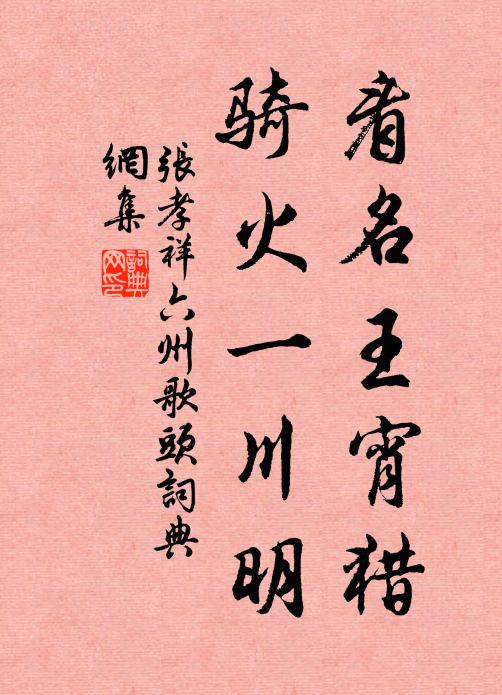 看名王宵猎
骑火一川明
張孝祥六州歌頭詞典
網集
詞典网印